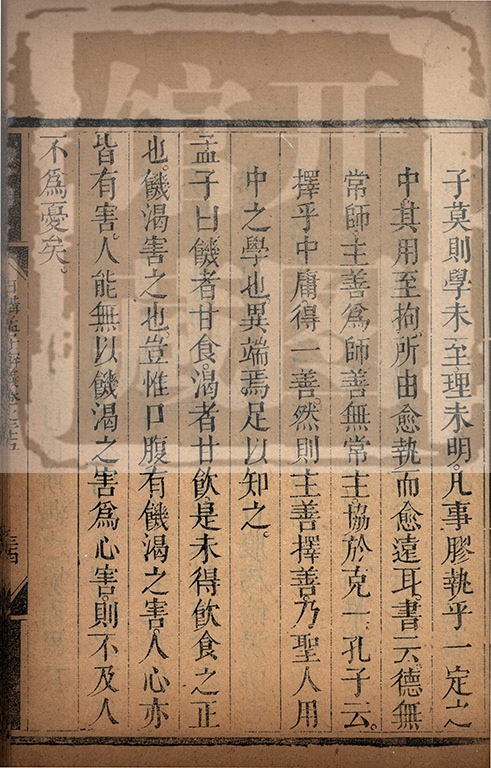 子莫則學未至理未明。凡事膠執乎一定之
中。其用至拘。所由愈執而愈遠耳。書云。德無
常師。主善爲師。善無常主。協於克一。孔子云。
擇乎中庸。得一善。然則主善擇善。乃聖人用
中之學也。異端焉足以知之。
孟子曰饑者甘食。渴者甘飲。是未得飲食之正
也。饑渴害之也。豈惟口腹有饑渴之害。人心亦
皆有害。人能無以饑渴之害爲心害。則不及人
不爲憂矣。